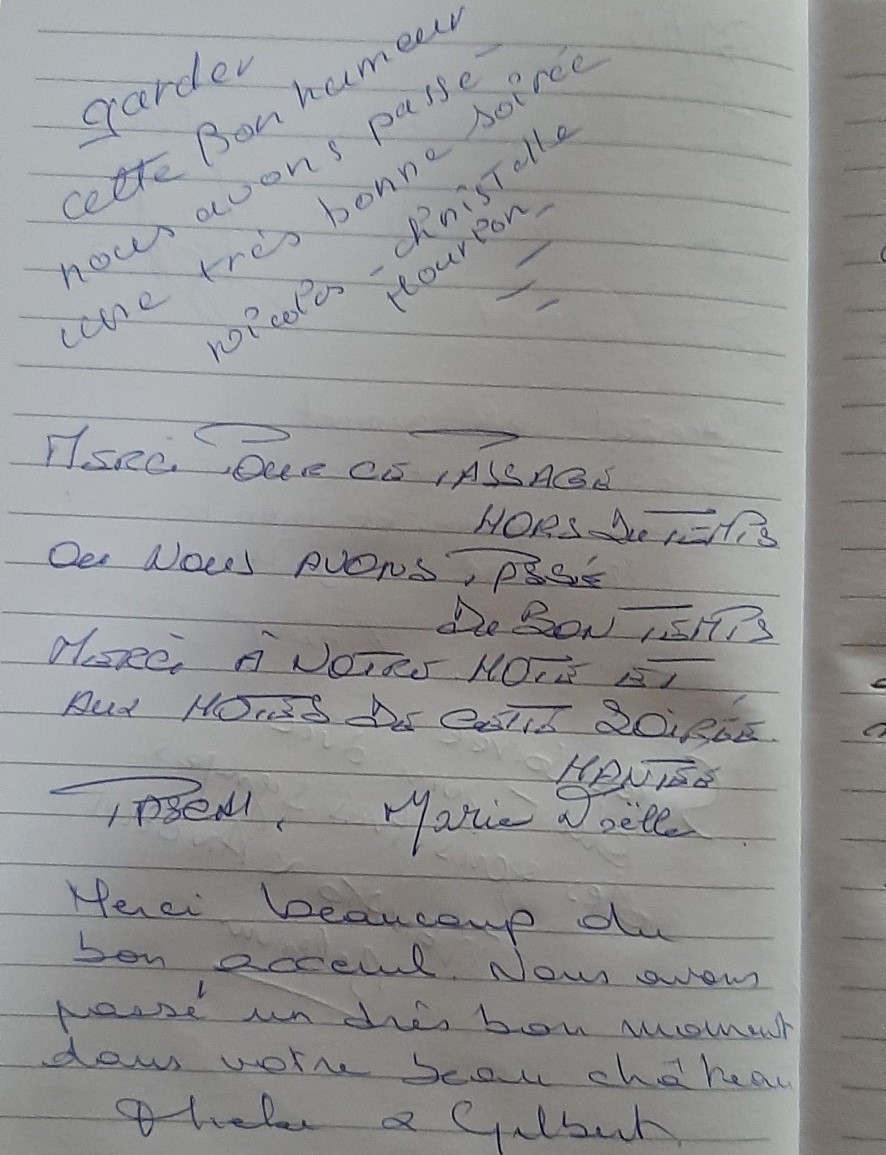 garder
cette Bon humeur
nous avons passé
une très bonne soirée
nicolas - christelle
Mourton
MERCi POUR CE PASSAGE
HORS DU TEMPS
OU NOUS AVONS PASSÉ
DU BON TEMPS
MERCi À NOTRE HOTE ET
AUX HOTES DE CETTE SOiRÉE
HANTEE
PASCAL. Marie Noëlle
Merci beaucoup du
bon acceuil. Nous avons
passé un très bon moment
dans votre beau château
& Gilbert